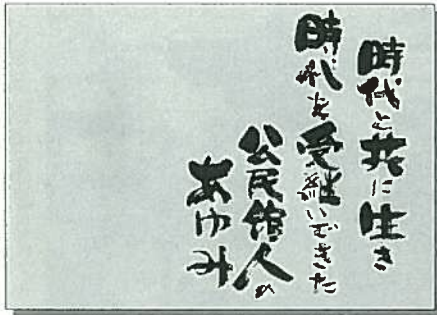 時代と共に生き
時代を受け継いできた
公民館人の
あゆみ